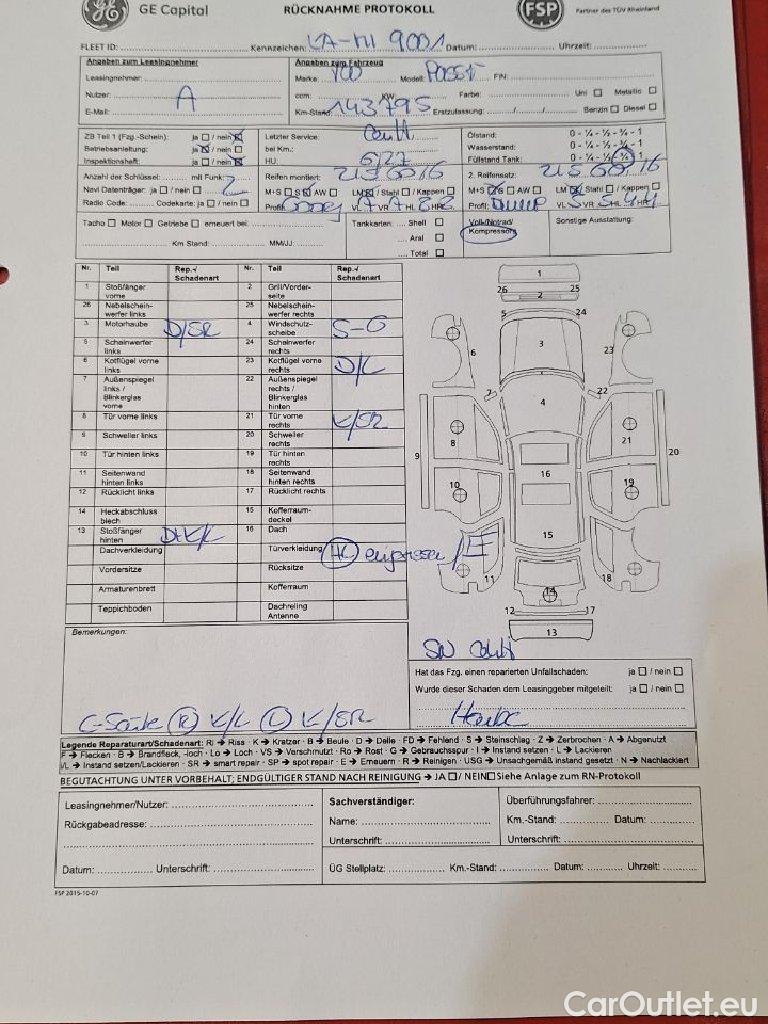 GE Capital RÜCKNAHME PROTOKOLL FSP Partner des TÜV Rheinland
FLEET ID: Kennzeichen: Datum: Uhrzeit:
Angaben zum Leasingnehmer Angaben zum Fahrzeug
Leasingnehmer: Marke Modell: Passat FIN:
Nutzer: A ccm: KW Farbe: Uni ☐ Metallic ☐
E-Mail: Km-Stand: 143795 Erstzulassung: / / Benzin ☐ Diesel ☐
ZB Teil 1 (Fzg.-Schein): ja ☐ / nein ☒ Letzter Service: Ölstand: 0 - ¼ - ½ - ¾ - 1
Betriebsanleitung: ja ☒ / nein ☐ bei Km.: Wasserstand: 0 - ¼ - ½ - ¾ - 1
Inspektionsheft: ja ☐ / nein ☒ HU: 6/27 Füllstand Tank: 0 - ¼ - ½ - ¾ - 1
Anzahl der Schlüssel: mit Funk: 2 Reifen montiert: 215 60 16 2. Reifensatz: 215 60 16
Navi Datenträger: ja ☐ / nein ☐ M+S ☐ S ☒ AW ☐ LM ☒ / Stahl ☐ / Kappen ☐ M+S ☒ S ☐ AW ☐ LM ☒ Stahl ☐ / Kappen ☐
Radio Code: Codekarte: ja ☐ / nein ☐ Profil: VL 7 VR 7 HL 8 HR Profil: VL 5 VR 5 HL 4 HR 4
Tacho ☐ Motor ☐ Getriebe ☐ erneuert bei: Tankkarten: Shell ☐ Vollk/Notrad/ Sonstige Ausstattung:
Aral ☐ Kompressor
Km Stand: MM/JJ: Total ☐
Nr. Teil Rep.-/ Schadenart Nr. Teil Rep.-/ Schadenart
1 Stoßfänger vorne 2 Grill/Vorderseite
26 Nebelscheinwerfer links 25 Nebelscheinwerfer rechts
3 Motorhaube D/SR 4 Windschutzscheibe S-G
5 Scheinwerfer links 24 Scheinwerfer rechts
6 Kotflügel vorne links 23 Kotflügel vorne rechts D/L
7 Außenspiegel links / Blinkerglas vorne 22 Außenspiegel rechts / Blinkerglas hinten
8 Tür vorne links 21 Tür vorne rechts K/SR
9 Schweller links 20 Schweller rechts
10 Tür hinten links 19 Tür hinten rechts
11 Seitenwand hinten links 18 Seitenwand hinten rechts
12 Rücklicht links 17 Rücklicht rechts
14 Heckabschlussblech 15 Kofferraumdeckel
13 Stoßfänger hinten 16 Dach
Dachverkleidung Türverkleidung
Vordersitze Rücksitze
Armaturenbrett Kofferraum
Teppichboden Dachreling Antenne
1
26 25
2
5 24
3
6 23
7 22
4
8 21
9 20
16
10 19
15
11 18
14
12 17
13
Bemerkungen:
C-Säule (R) K/L (L) K/SR
Hat das Fzg. einen reparierten Unfallschaden: ja ☐ / nein ☐
Wurde dieser Schaden dem Leasinggeber mitgeteilt: ja ☐ / nein ☐
Legende Reparaturart/Schadenart: Ri → Riss · K → Kratzer · B → Beule · D → Delle · FD → Fehlend · S → Steinschlag · Z → Zerbrochen · A → Abgenutzt
F → Flecken · B → Brandfleck, -loch · Lo → Loch · VS → Verschmutzt · Ro → Rost · G → Gebrauchsspur · I → Instand setzen · L → Lackieren
I/L → Instand setzen/Lackieren · SR → smart repair · SP → spot repair · E → Erneuern · R → Reinigen · USG → Unsachgemäß instand gesetzt · N → Nachlackiert
BEGUTACHTUNG UNTER VORBEHALT; ENDGÜLTIGER STAND NACH REINIGUNG → JA ☐ / NEIN ☐ Siehe Anlage zum RN-Protokoll
Leasingnehmer/Nutzer: Sachverständiger: Überführungsfahrer:
Rückgabeadresse: Name: Km.-Stand: Datum:
Unterschrift: Unterschrift:
Datum: Unterschrift: ÜG Stellplatz: Km.-Stand: Datum: Uhrzeit:
FSP 2015-10-07
CarOutlet.eu